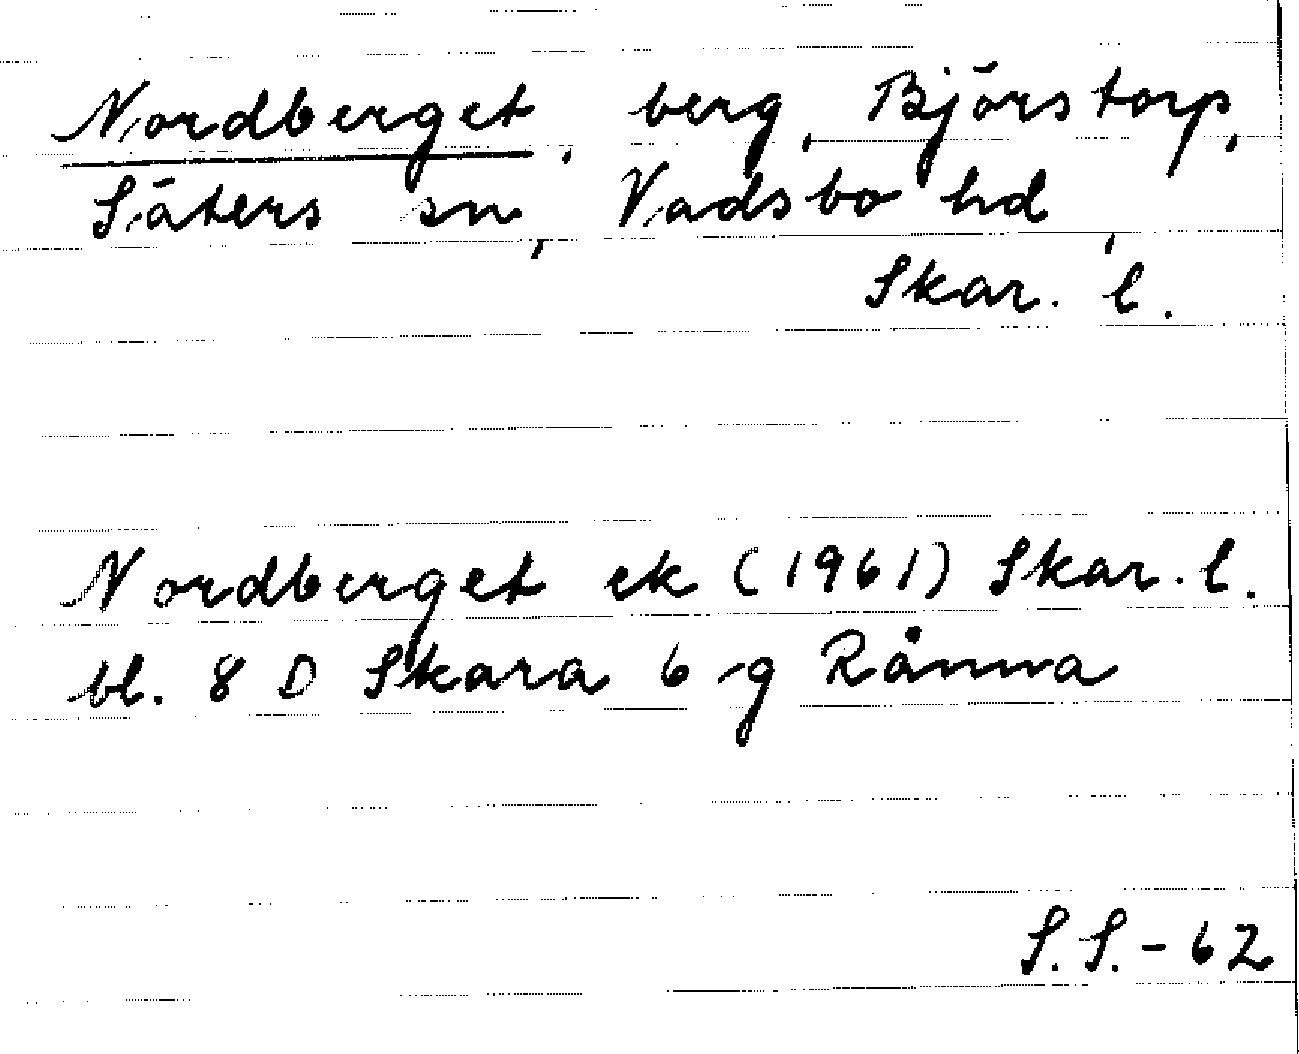 Nordberget, berg, Björstorp,
Säters sn, Vadsbo hd,
Skar. l.
Nordberget ek (1961) Skar. l.
bl. 8 D Skara 6 g Rånna
S.S.-62